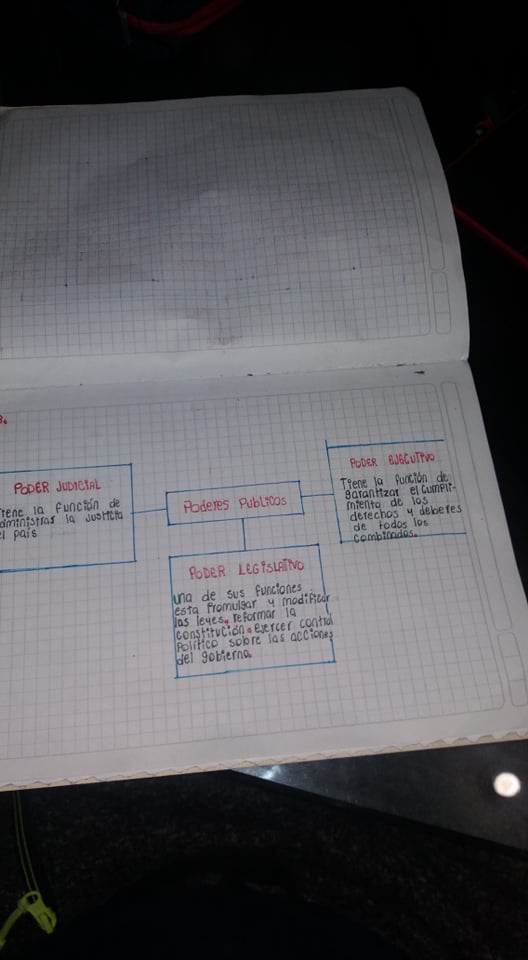 3.
PODER JUDICIAL
Tiene la función de
administrar la justicia
el país
Poderes Publicos
PODER EJECUTIVO
Tiene la función de
garantizar el cumpli-
miento de los
derechos y deberes
de todos los
combinados.
PODER LEGISLATIVO
una de sus funciones
esta Promulgar y modificar
las leyes, reformar la
constitución. Ejercer control
Político sobre las acciones
del gobierno.